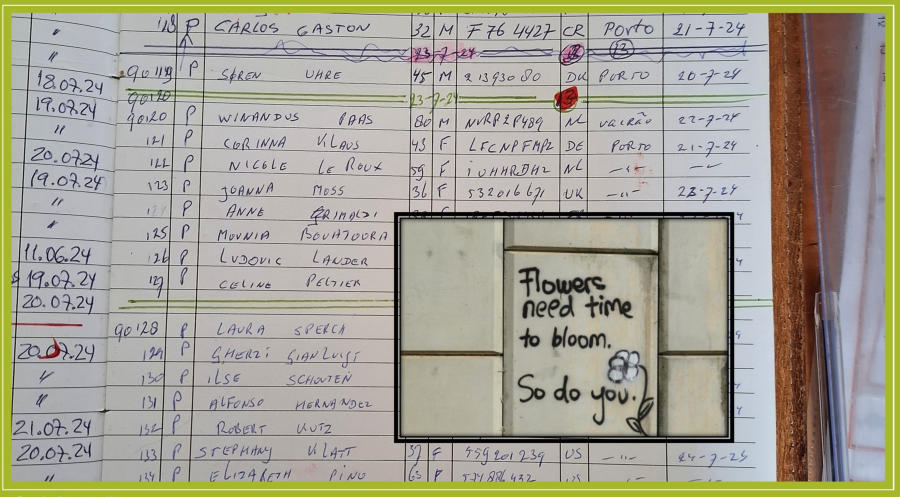 " 118 P CARLOS GASTON 32 M F 76 4427 CR PORTO 21-7-24
" 23-7-24 12 13
18.07.24 90119 P SØREN UHRE 45 M 21393080 DK PORTO 20-7-24
90120 23-7-24 13
19.07.24 90120 P WINANDUS PAAS 80 M NVRP2P489 NL VAIRÃO 22-7-24
" 121 P CORINNA KLAUS 43 F DE PORTO 21-7-24
20.07.24 122 P NICOLE LE ROUX 59 F NL -"-
19.07.24 123 P JOANNA MOSS 36 F 532016671 UK -"- 23-7-24
" P ANNE GRIMALDI
" 125 P MOUNIA BOUATOURA
11.06.24 126 P LUDOVIC LANDER
19.07.24 127 P CELINE PELTIER
20.07.24
90128 P LAURA SPERCH
20.07.24 129 P GHERZI GIANLUIGI
" 130 P ILSE SCHOUTEN
" 131 P ALFONSO HERNANDEZ
21.07.24 132 P ROBERT KUTZ
20.07.24 133 P STEPHANY KLATT 37 F 559201239 US -"-
134 P ELIZABETH PINO 63
Flowers
need time
to bloom.
So do you.